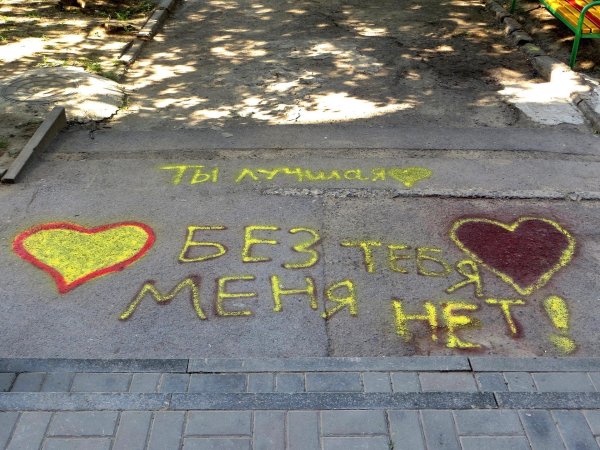 ТЫ ЛУЧШАЯ
БЕЗ ТЕБЯ
МЕНЯ НЕТ!